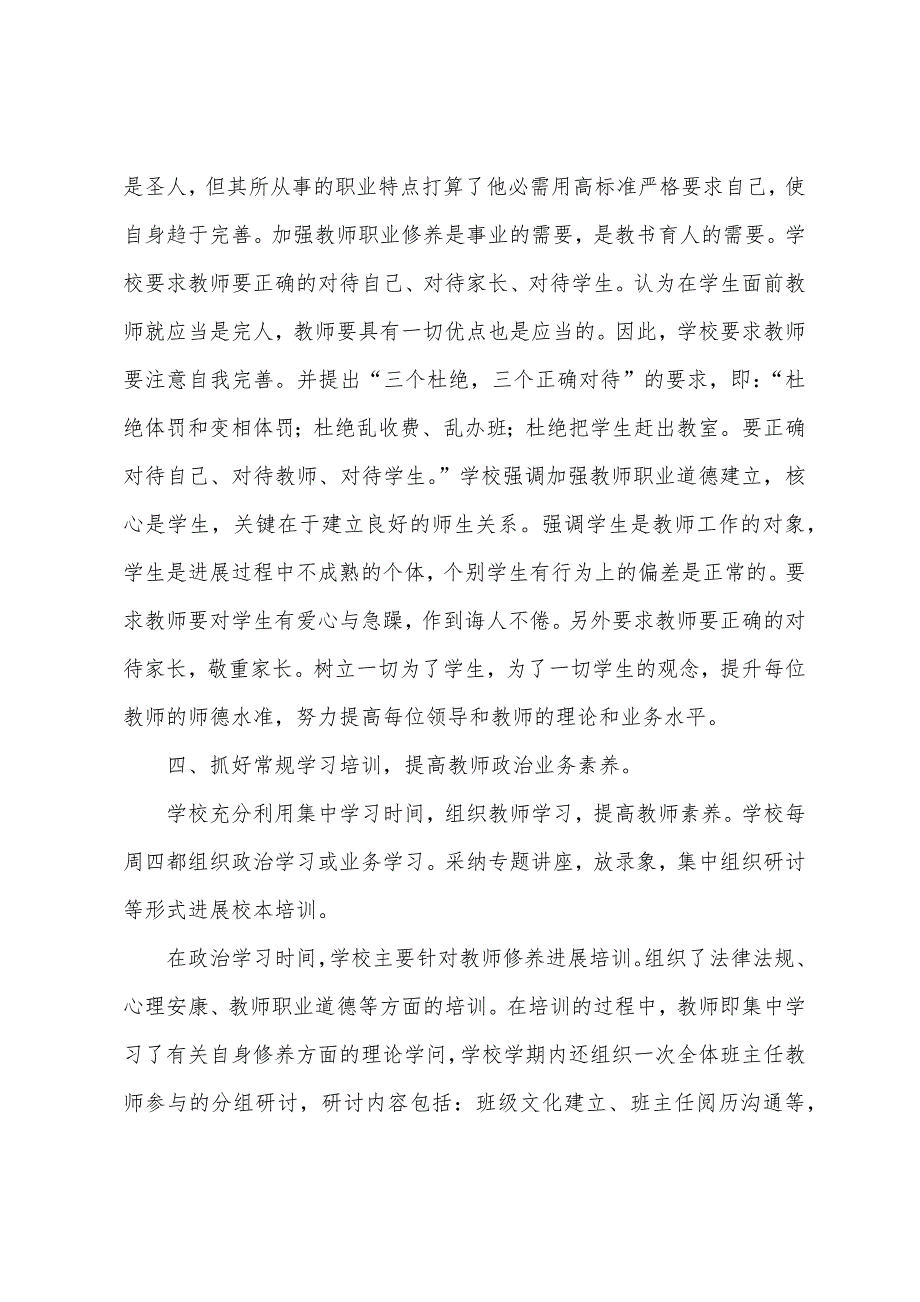 是圣人，但其所从事的职业特点打算了他必需用高标准严格要求自己，使
自身趋于完善。加强教师职业修养是事业的需要，是教书育人的需要。学
校要求教师要正确的对待自己、对待家长、对待学生。认为在学生面前教
师就应当是完人，教师要具有一切优点也是应当的。因此，学校要求教师
要注意自我完善。并提出“三个杜绝，三个正确对待”的要求，即：“杜
绝体罚和变相体罚；杜绝乱收费、乱办班；杜绝把学生赶出教室。要正确
对待自己、对待教师、对待学生。”学校强调加强教师职业道德建立，核
心是学生，关键在于建立良好的师生关系。强调学生是教师工作的对象，
学生是进展过程中不成熟的个体，个别学生有行为上的偏差是正常的。要
求教师要对学生有爱心与急躁，作到诲人不倦。另外要求教师要正确的对
待家长，敬重家长。树立一切为了学生，为了一切学生的观念，提升每位
教师的师德水准，努力提高每位领导和教师的理论和业务水平。
四、抓好常规学习培训，提高教师政治业务素养。
学校充分利用集中学习时间，组织教师学习，提高教师素养。学校每
周四都组织政治学习或业务学习。采纳专题讲座，放录象，集中组织研讨
等形式进展校本培训。
在政治学习时间，学校主要针对教师修养进展培训。组织了法律法规、
心理安康、教师职业道德等方面的培训。在培训的过程中，教师即集中学
习了有关自身修养方面的理论学问，学校学期内还组织一次全体班主任教
师参与的分组研讨，研讨内容包括：班级文化建立、班主任阅历沟通等，